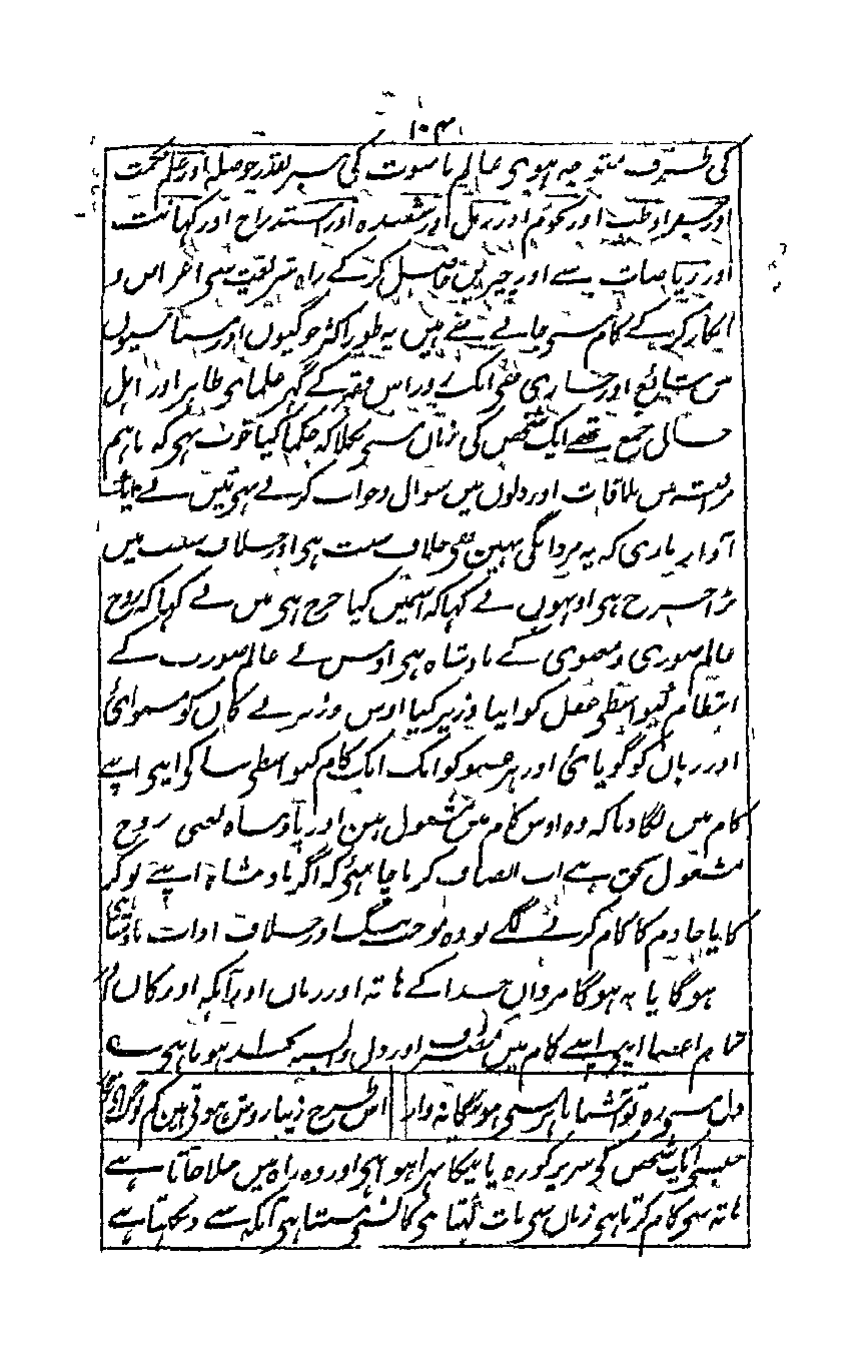 ۱۰۳
کی طرف متوجہ ہوی عالم ناسوت کی سیر بقدر حوصلہ اور علم حکمت
اور جفر اور طب اور نجوم اور رمل اور شعبدہ اور استدراج اور کہانت
اور ریاضات سے اور چیزیں حاصل کرکے راہ شریعت سی اعراض و
انکار کرکے کام سی جاتے تھے ہیں یہ طور اکثر جوگیوں اور سناسیوں
میں شائع اور جاری ہی ایک روز اس فقیر کے گہر علمای ظاہر اور اہل
حال جمع تھے ایک شخص کی زبان سی نکلا کہ حکما کیا خوب ہی کہ باہم
ملاقات اور دلوں میں سوال و جواب کرتے ہی میں نے ایک
آواز ماری کہ یہ مردانگی نہین ہی خلاف سنت ہی اور خلاف سنت میں
بڑا حرج ہی اونہوں نے کہا کہ اسمیں کیا حرج ہی میں نے کہا کہ روح
عالم صوری و معنوی کے بادشاہ ہی اوس نے عالم صورت کے
انتظام کیواسطی عقل کو اپنا وزیر کیا اوس وزیر نے کان کو سنوائی
اور زبان کو گویائی اور ہر عضو کو ایک ایک کام کیواسطی بنا کی اپی اپنے
کام میں لگا دیا کہ وہ اوس کام میں مشغول ہین اور بادشاہ یعنی روح
مشغول بحق ہے اب انصاف کرنا چاہئی کہ اگر بادشاہ اپنے نوکر
کا یا خادم کا کام کرنے لگے تو وہ موجب ننگ اور خلاف اداب بادشاہی
ہوگا یا نہ ہوگا مردان خدا کے ہاتہ اور زبان اور آنکہ اور کان اور
تمام اعضا اپی اپنے کام میں مصروف اور دل وابستہ بخدا ہوتا ہی
دل سی وہ تو آشنا باہر سی ہو بیگانہ وار اس طرح زیبا روش ہوتی ہین کم
جیسی ایک شخص کی سر پر کوزہ یا مٹکا بہرا ہوا ہی اور وہ راہ میں چلا جاتا ہے
ہاتہ سی کام کرتا ہی زبان سی بات کہتا ہی کان سی سنتا ہی آنکہ سے دیکہتا ہے